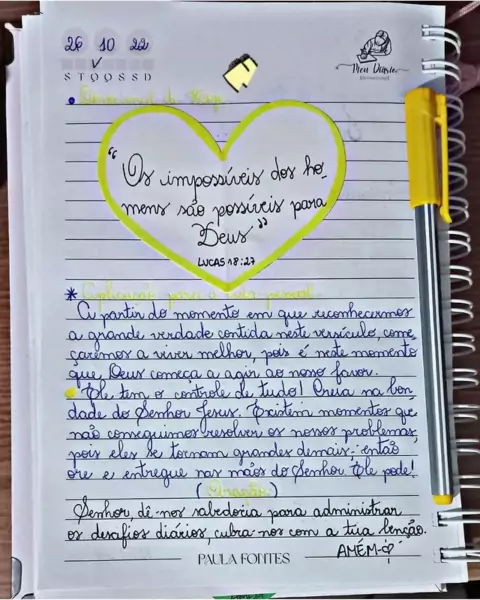 26 10 22
S T Q Q S S D
Meu Diário
Devocional do dia
"Os impossíveis dos ho_
mens são possíveis para
Deus"
LUCAS 18:27
* Aplicação para a vida pessoal
A partir do momento em que reconhecermos
a grande verdade contida neste versículo, come_
çaremos a viver melhor, pois é neste momento
que Deus começa a agir ao nosso favor.
Ele tem o controle de tudo! Creia na bon_
dade do Senhor Jesus. Existem momentos que
não conseguimos resolver os nossos problemas,
pois eles se tornam grandes demais; então
ore e entregue nas mãos do Senhor Ele pode!
(Oração)
Senhor, dê-nos sabedoria para administrar
os desafios diários, cubra-nos com a tua benção.
AMÉM
PAULA FONTES